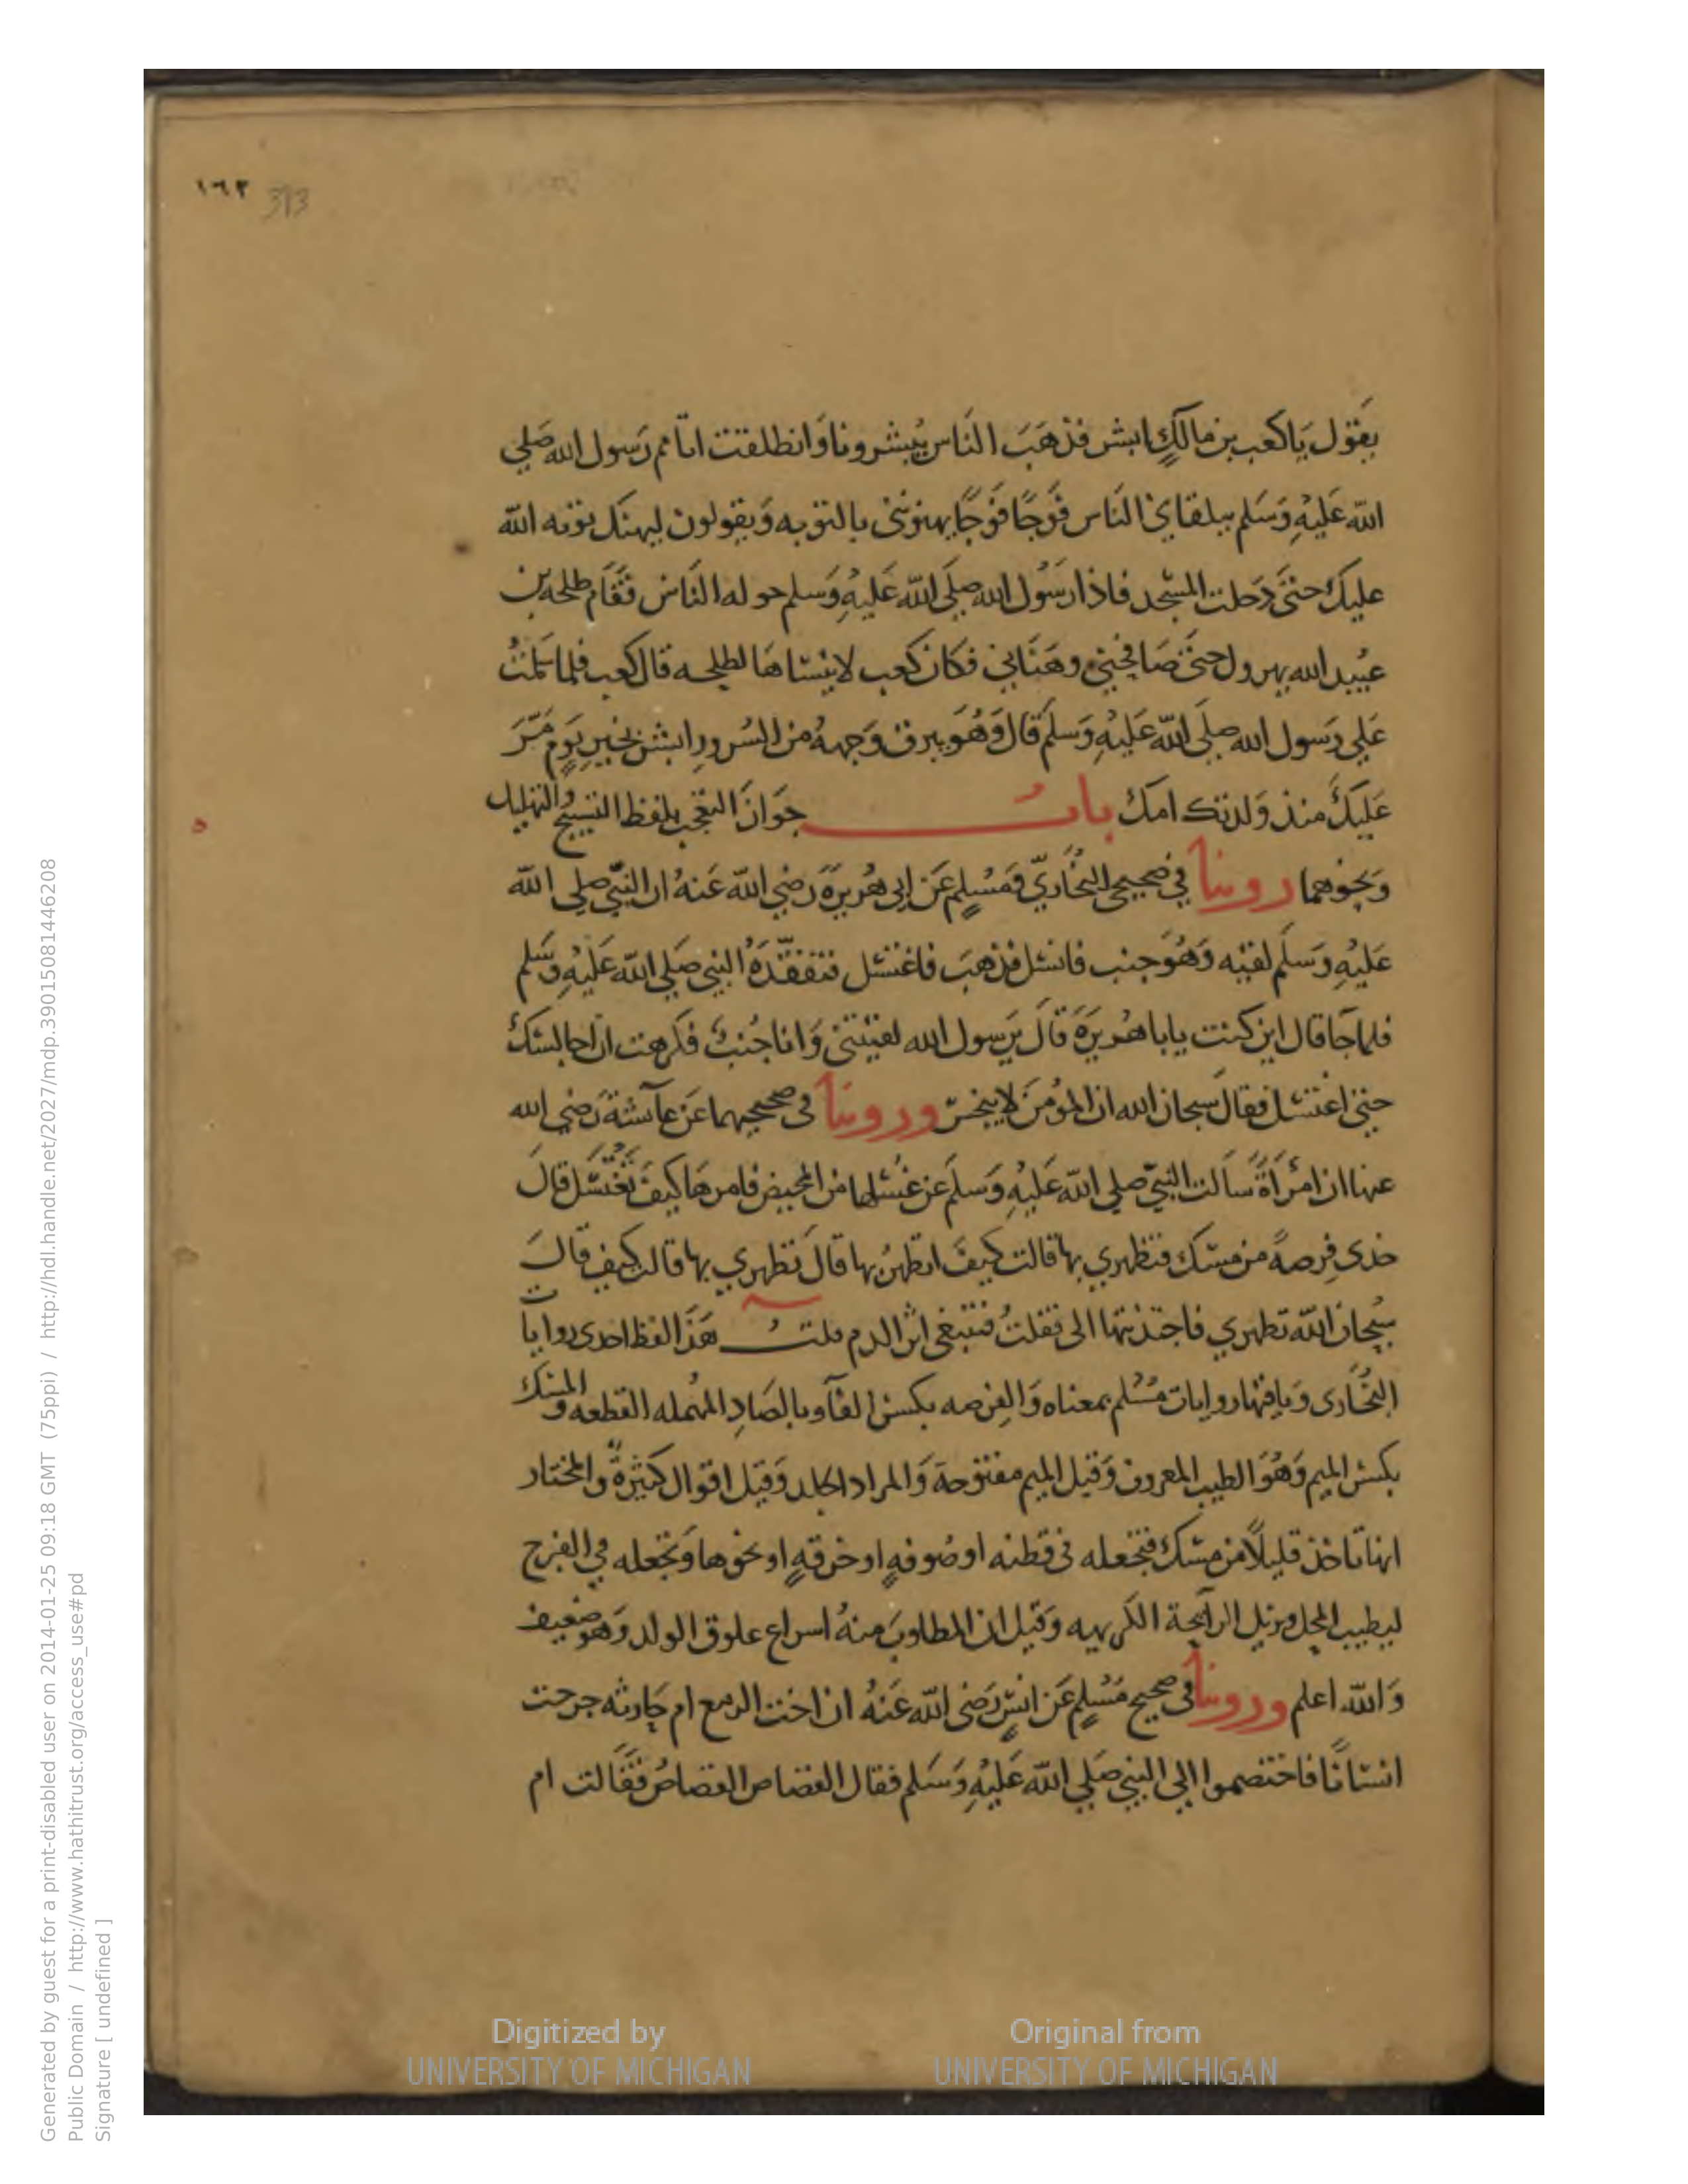 ١٦٣ 393
يَقول يَا كعب بن مالكٍ ابشر فذهَبَ النَاس يُبشرونا وَانطلقت اتامم رَسول الله صَلي
الله عَليْهِ وَسَلم يتلقاني النَاس فَوجًا فَوجًا يهنونَني بالتوبه وَيقولون ليهنك توبه الله
عليكَ حتىَ دَخلت المسْجد فاذا رَسُول الله صلَى الله عَليْهِ وَسلم حوله النَاس فقَام طلحه بن
عبُيد الله يهرول حتىَ صَافحني وهَنَاني فكان كعب لا ينْساهَا لطلحه قال كعب فلما سَلمْتُ
عَلي رَسول الله صلَى الله عَليْهِ وَسَلمَ قال وَهُوَ يبرق وَجههُ من السُرورِ ابشر بخيرِ يَومٍ مَرَّ
عَليكَ منذ وَلدتك امك بابُ جوَاز التعَجب بلفظ التسبيح والتهليل
وَنحوهما روينا في صَحيحي البخُاريّ وَمُسْلمٍ عَن ابي هُريرَةَ رَضي الله عَنهُ ان النبيّ صلي الله
عَليْهِ وَسَلَم لقيْه وَهُوَ جنب فانسَل فذهبَ فاغتسَل فتفقّدَهُ النبي صَلي الله عَليْهِ وسَلم
فلما جَا قال اين كنت يابا هُريرَةَ قالَ يرَسول الله لقيْتني وَانا جُنبٌ فكرهت ان اجالسَكَ
حتىَ اغتسَل فقال سبحان الله ان المؤمنَ لا ينجسّ وروينا في صحيحيهما عَن عآئشةَ رَضي الله
عنها ان امْرَأةً سَالت النبيّ صلي الله عَليْهِ وَسَلمَ عن غسْلها من المحيض فامرهَا كيفَ تَغْتَسل قالَ
خذى فِرصةً من مسْك فتطهري بها قالت كيفَ اتطهرُ بها قالَ تَطهري بها قالت كيف قالَ
سبُحان الله تطهري فاجتذبتها الى فقلتُ تتبعي اثر الدم قلتُ هَذا لفظ احدى روايات
البخُاري وَباقيها روايات مُسْلم بمعناه وَالفِرصه بكسْر الفآو بالصَادِ المهمله القطعه والمسك
بكسْر الميم وَهُوَ الطيب المعروف وَقيل الميم مفتوحة وَالمراد الجلد وَقيل اقوال كثيرةٌ والمختار
انها تاخذ قليلاً من مسْك فتجعله في قطنه او صُوفهٍ او خرقهٍ او نحوها وَتجعله في الفرج
ليطيب المحل ويزيل الرآيحة الكريهه وَقيل ان المطلوبَ منهُ اسراع علوق الولد وَهو ضعيف
وَالله اعلم وروينا في صحيح مُسْلمٍ عَن انسٍ رَضي الله عَنهُ ان اخت الربيع ام حَارثه جرحت
انسَانًا فاختصموا الي النبي صَلي الله عَليْهِ وَسَلم فقال القصَاص القصَاصُ فقَالت ام
Digitized by
UNIVERSITY OF MICHIGAN
Original from
UNIVERSITY OF MICHIGAN
Generated by guest for a print-disabled user on 2014-01-25 09:18 GMT (75ppi) / http://hdl.handle.net/2027/mdp.39015081446208
Public Domain / http://www.hathitrust.org/access_use#pd
Signature [ undefined ]